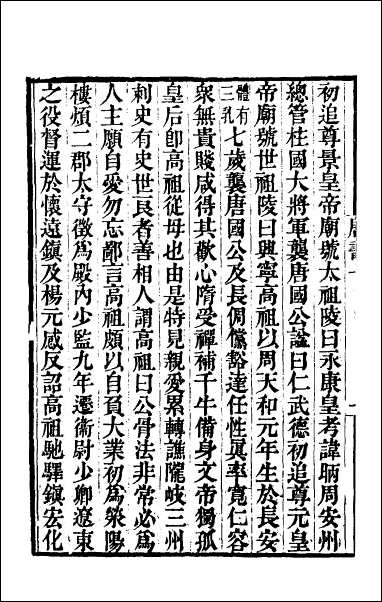 初追尊景皇帝廟號太祖陵曰永康皇考諱昞周安州
總管柱國大將軍襲唐國公諡曰仁武德初追尊元皇
帝廟號世祖陵曰興寧高祖以周天和元年生於長安
體有三乳七歲襲唐國公及長倜儻豁達任性眞率寬仁容
衆無貴賤咸得其歡心隋受禪補千牛備身文帝獨孤
皇后卽高祖從母也由是特見親愛累轉譙隴岐三州
刺史有史世良者善相人謂高祖曰公骨法非常必爲
人主願自愛勿忘鄙言高祖頗以自負大業初爲滎陽
樓煩二郡太守徵爲殿內少監九年遷衞尉少卿遼東
之役督運於懷遠鎭及楊元感反詔高祖馳驛鎭宏化